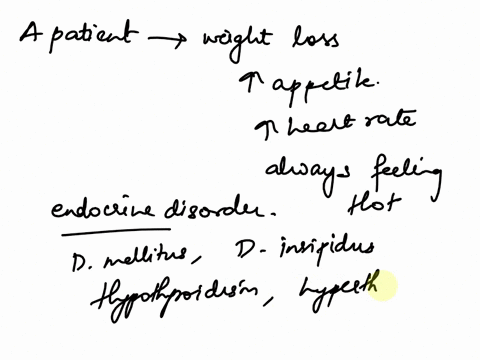 A patient → weight loss
↑ appetite.
↑ heart rate
always feeling
Hot
endocrine disorder.
D. mellitus, D. insipidus
Hypothyroidism, hyperth